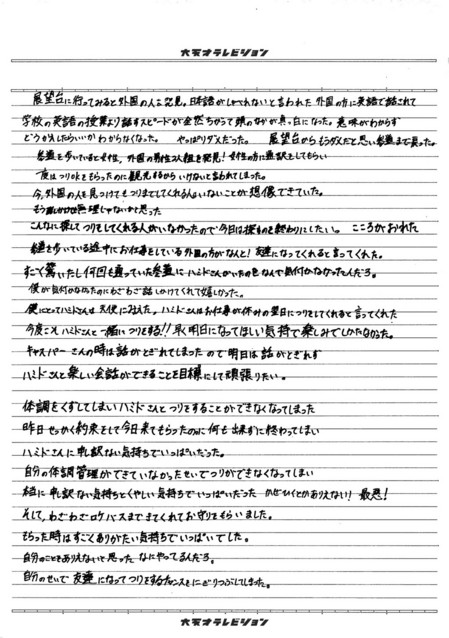 大天才テレビジョン
展望台に行ってみると外国の人を発見。日本語がしゃべれないと言われた 外国の方に英語で話されて
学校の英語の授業より話すスピードが全然ちがって頭のなかが真っ白になった。意味がわからず
どう返したらいいかわからなくなった。 やっぱりダメだった。 展望台からもうダメだと思い参道まで戻った。
参道を歩いていると女性、外国の男性2人組を発見! 女性の方に通訳をしてもらい
一度はつりOKをもらったのに観光するからいけないと言われてしまった。
今、外国の人を見つけてもつりまでしてくれる人はいないことが想像できていた。
もう話しかけは無理じゃないかと思った
こんなに探してつりをしてくれる人がいなかったので今日は捜すのを終わりにしたい。 こころがおれた
参道を歩いている途中にお仕事をしている外国の方がなんと! 友達になってくれると言ってくれた。
すごく驚いたし何回も通っていた参道にハミドさんがいたのをなんで気付かなかったんだろう。
僕が気付かなかったのにわざわざ話しかけてくれて嬉しかった。
僕にとってハミドさんは天使にみえた。ハミドさんはお仕事が休みの翌日につりをしてくれると言ってくれた
今度こそハミドさんと一緒につりをする!! 早く明日になってほしい気持で楽しみでしかたなかった。
キャスパーさんの時は話がとぎれてしまったので明日は話がとぎれず
ハミドさんと楽しい会話ができることを目標にして頑張りたい。
体調をくずしてしまいハミドさんとつりをすることができなくなってしまった
昨日せっかく約束をして今日来てもらったのに何も出来ずに終わってしまい
ハミドさんに申し訳ない気持ちでいっぱいだった。
自分の体調管理ができていなかったせいでつりができなくなってしまい
本当に申し訳ない気持ちとくやしい気持ちでいっぱいだった かぜひくとかありえない! 最悪!
そして、わざわざロケバスまできてくれてお守りをもらいました。
もらった時はすごくありがたい気持ちでいっぱいでした。
自分のことをありえないと思った なにやってるんだろう。
自分のせいで友達になってつりをするチャンスをにぎりつぶしてしまった。
大天才テレビジョン